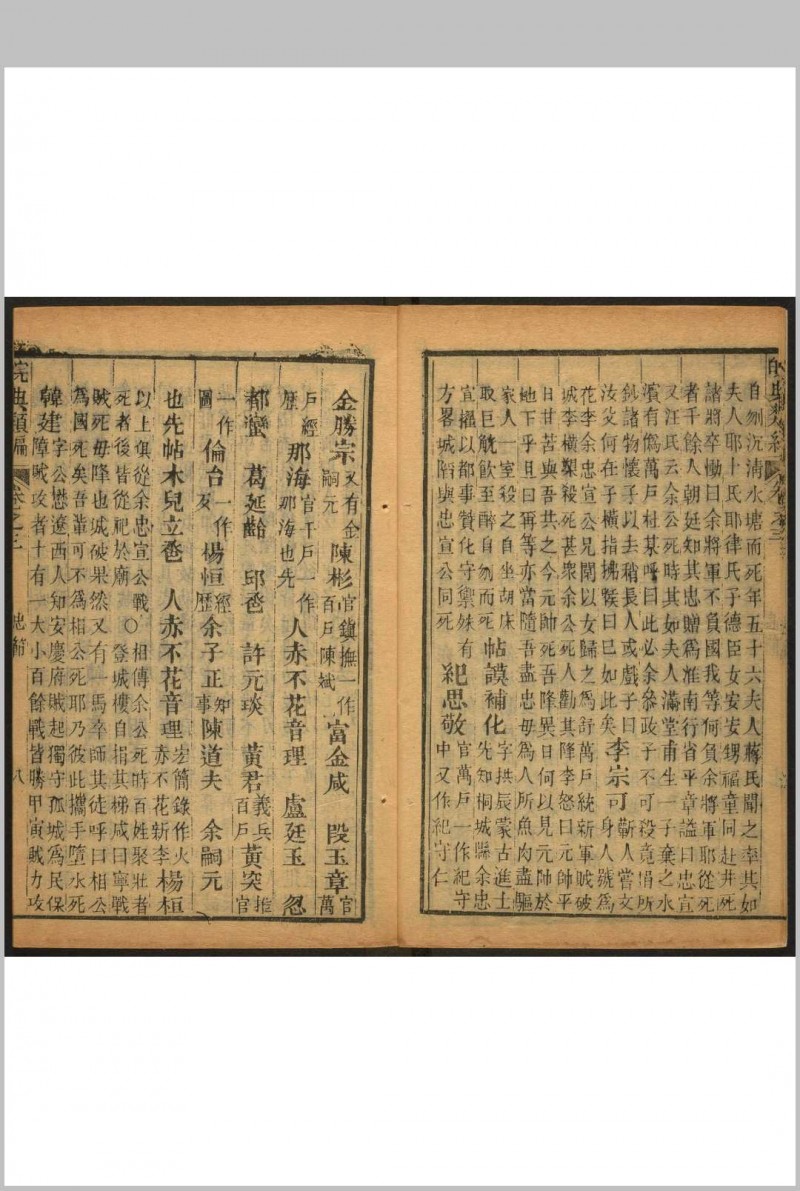 自刎沉清水塘而死年五十六夫人蔣氏聞之率其如
夫人耶卜氏耶律氏子德臣女安安甥福童同赴井死
諸將卒慟曰余將軍不負國我等何負余將軍耶從死
者千餘人朝廷知其忠贈爲淮南行省平章謚曰忠宣
又汪氏云余公死時其如夫人滿堂甫生一子棄之水
濱有僞萬戶杜某呼曰此必余參政子不可殺竟捐所
鈔諸物懷子以去稍長人或戲子曰
汝父何在子橫指拂喉曰巳如此矣
李宗可
蘄人嘗文
身人號爲
花李余忠宣公兄闗以女歸之爲舒萬戶統新軍賊破
城李橫槊殺死甚衆余公死人勸其降李怒曰元帥平
日甘苦與吾共之今元帥死吾降異日何以見元帥於
地下乎且曰再等亦當隨吾盡忠毋爲人所魚肉盡驅
家人一室殺之自坐胡床
取巨觥飲至醉自刎而死
帖謨補化
字拱辰蒙古進士
先知桐城縣余忠
宣攝以都事贊化守禦妹有
方畧城陷與忠宣公同死
紀思敬
官萬戶一作紀守
中又作紀守仁
金勝宗
又有金
嗣元
陳彬
官鎮撫一作
百戶陳斌
富金咸
段玉章
官
萬
戶經
歷
那海
官千戶一作
那海也先
人赤不花音理
盧廷玉
忽
都蠻
葛延齡
邱卺
許元琰
黃君
義兵
百戶
黃突
推
官
一作
圖
倫台
一作
歹
楊恒
經
歷
余子正
知
事
陳道夫
余嗣元
也先帖木兒立卺
人赤不花音理
宏簡錄作火
赤不花新李
楊桓
以上俱從余忠宣公戰
死者後皆從祀於廟
〇
相傳余公死時百姓聚壯者
登城樓自捐其梯咸曰寧戰
賊死毋降也城破果然又有一馬卒師其徒呼曰相公
爲國死矣吾輩可不爲相公死耶乃彼此攜手墮水死
韓建
字公懋遼西人知安慶府賊起獨守孤城爲民保
障賊攻者十有一大小百餘戰皆勝甲寅賊力攻
卷之三
八